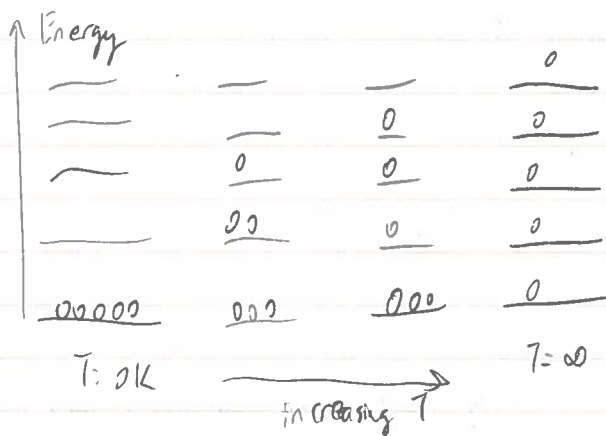 Energy
0
0 0
0 0 0
00 0 0
00000 000 000 0
T: 0K T=∞
increasing T